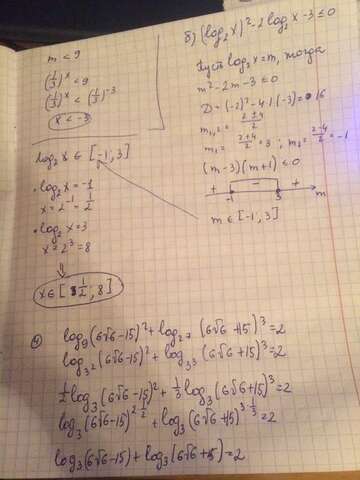 m < 9
(1/3)^x < 9
(1/3)^x < (1/3)^-3
x < -3
б) (log₂x)² - 2log₂x - 3 ≤ 0
Пусть log₂x = m, тогда
m² - 2m - 3 ≤ 0
D = (-2)² - 4·1·(-3) = 16
m₁,₂ = (2±4)/2
m₁ = (2+4)/2 = 3 ; m₂ = (2-4)/2 = -1
(m-3)(m+1) ≤ 0
+ - +
-1 3 m
m ∈ [-1; 3]
log₂x ∈ [-1; 3]
• log₂x = -1
x = 2⁻¹ = 1/2
• log₂x = 3
x = 2³ = 8
⇓
x ∈ [1/2; 8]
④
log₉(6√6-15)² + log₂₇(6√6+15)³ = 2
log₃²(6√6-15)² + log₃³(6√6+15)³ = 2
1/2 log₃(6√6-15)² + 1/3 log₃(6√6+15)³ = 2
log₃(6√6-15)^(2·1/2) + log₃(6√6+15)^(3·1/3) = 2
log₃(6√6-15) + log₃(6√6+15) = 2